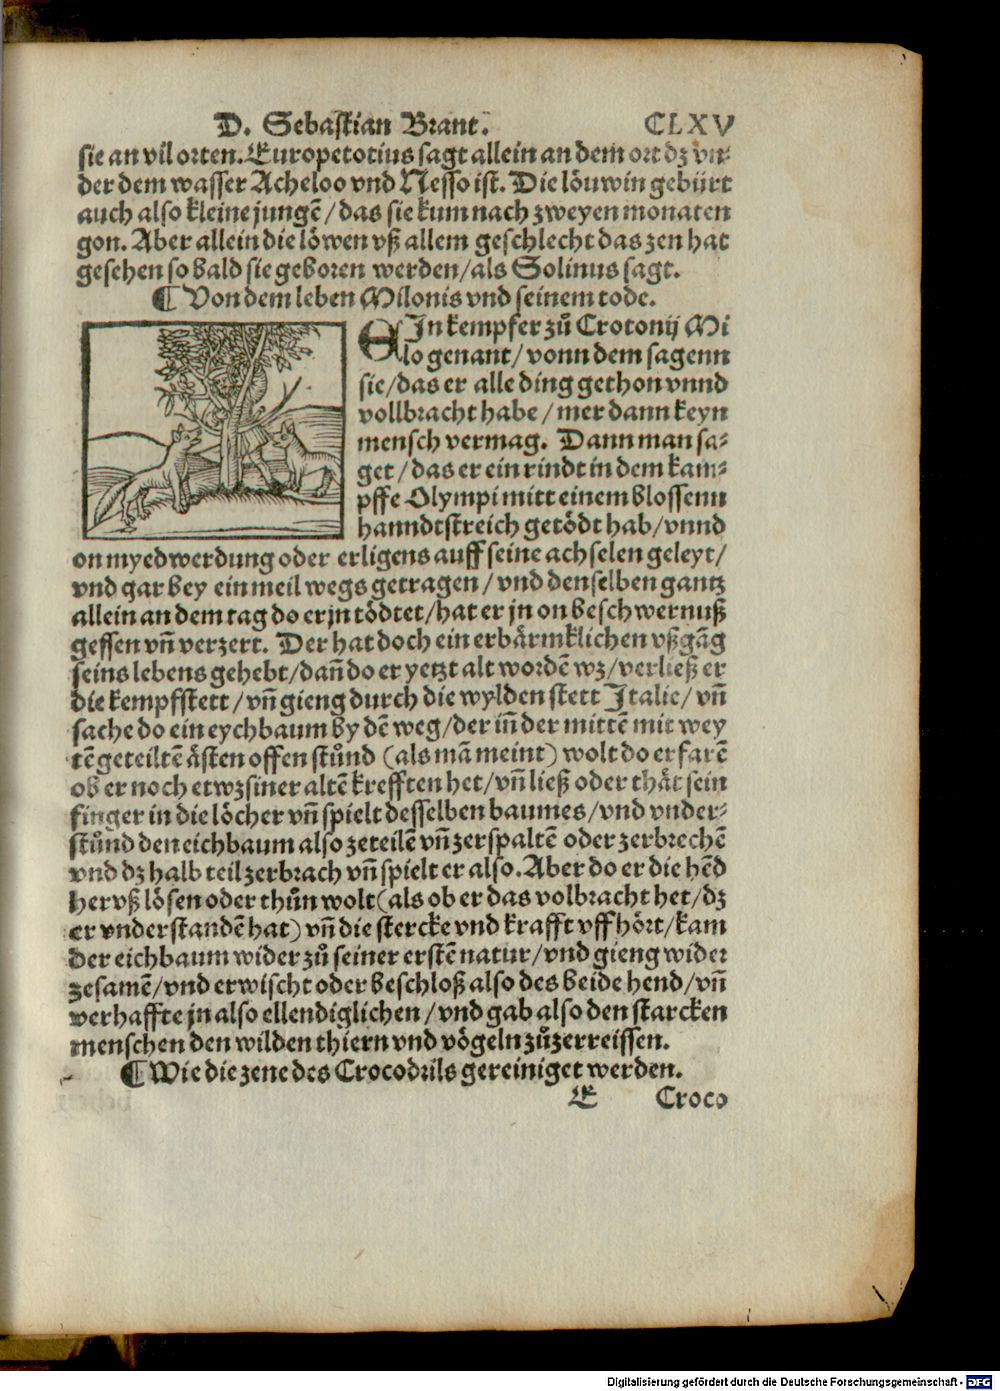 D. Sebastian Brant. CLXV
sie an vil orten. Europe totius sagt allein an dem ort dz vn-
der dem wasser Acheloo vnd Nesso ist. Die löuwin gebürt
auch also kleine jungē / das sie kum nach zweyen monaten
gon. Aber allein die löwen vß allem geschlecht das zen hat
gesehen so bald sie geboren werden / als Solinus sagt.
¶ Von dem leben Milonis vnd seinem tode.
EIn kempfer zů Crotonij Mi
lo genant / vonn dem sagenn
sie / das er alle ding gethon vnnd
vollbracht habe / mer dann keyn
mensch vermag. Dann man sa-
get / das er ein rindt in dem kam-
pffe Olympi mitt einem blossenn
hanndtstreich getödt hab / vnnd
on myedwerdung oder erligens auff seine achselen geleyt /
vnd gar bey ein meil wegs getragen / vnd denselben gantz
allein an dem tag do er jn tödtet / hat er jn on beschwernuß
gessen vn̄ verzert. Der hat doch ein erbärmklichen vßgāg
seins lebens gehebt / dan̄ do er yetzt alt wordē wz / verließ er
die kempfstett / vn̄ gieng durch die wylden stett Italie / vn̄
sache do ein eychbaum by dē weg / der in̄ der mittē mit wey
tē geteiltē ästen offen stůnd (als mā meint) wolt do erfarē
ob er noch etwz siner altē krefften het / vn̄ ließ oder thät sein
finger in die löcher vn̄ spielt desselben baumes / vnd vnder-
stůnd den eichbaum also zeteilē vn̄ zerspaltē oder zerbrechē
vnd dz halb teil zerbrach vn̄ spielt er also. Aber do er die hēd
her vß lösen oder thůn wolt (als ob er das volbracht het / dz
er vnderstandē hat) vn̄ die stercke vnd krafft vff hört / kam
der eichbaum wider zů seiner erstē natur / vnd gieng wider
zesamē / vnd erwischt oder beschloß also des beide hend / vn̄
verhaffte jn also ellendiglichen / vnd gab also den starcken
menschen den wilden thiern vnd vögeln zůzerreissen.
¶ Wie die zene des Crocodrils gereiniget werden.
E Croco
Digitalisierung gefördert durch die Deutsche Forschungsgemeinschaft - DFG